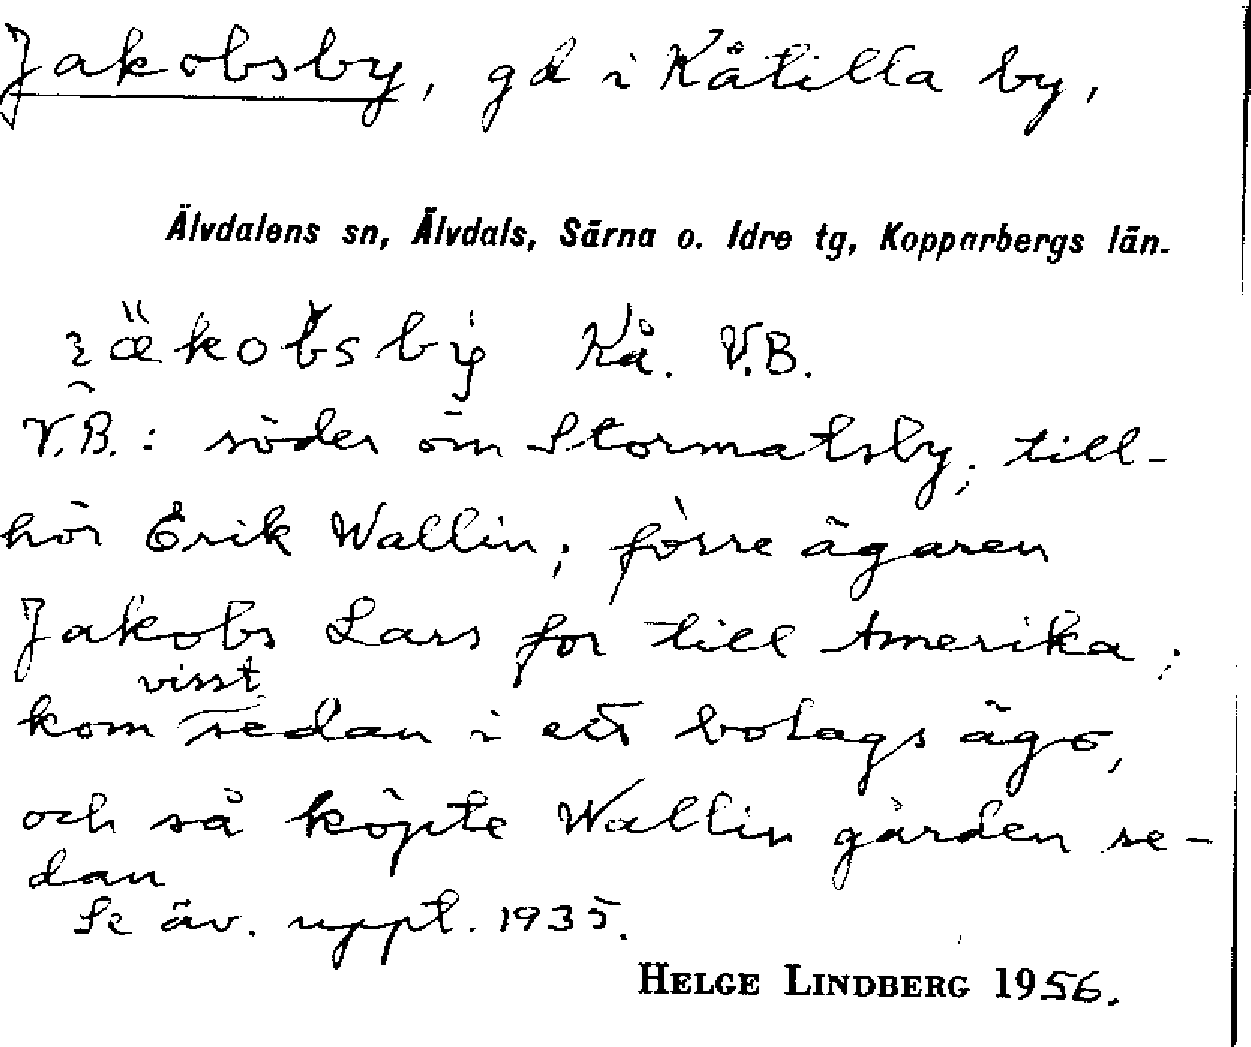 Jakobsby, gd i Kåtilla by,
Älvdalens sn, Älvdals, Särna o. Idre tg, Kopparbergs län.
Kå. V.B.
V.B.: söder om Stormatsby; till-
hör Erik Wallin; förre ägaren
Jakobs Lars for till Amerika;
visst
kom sedan i ett bolags ägo,
och så köpte Wallin gården se-
dan
Se äv. uppt. 1935.
HELGE LINDBERG 1956.